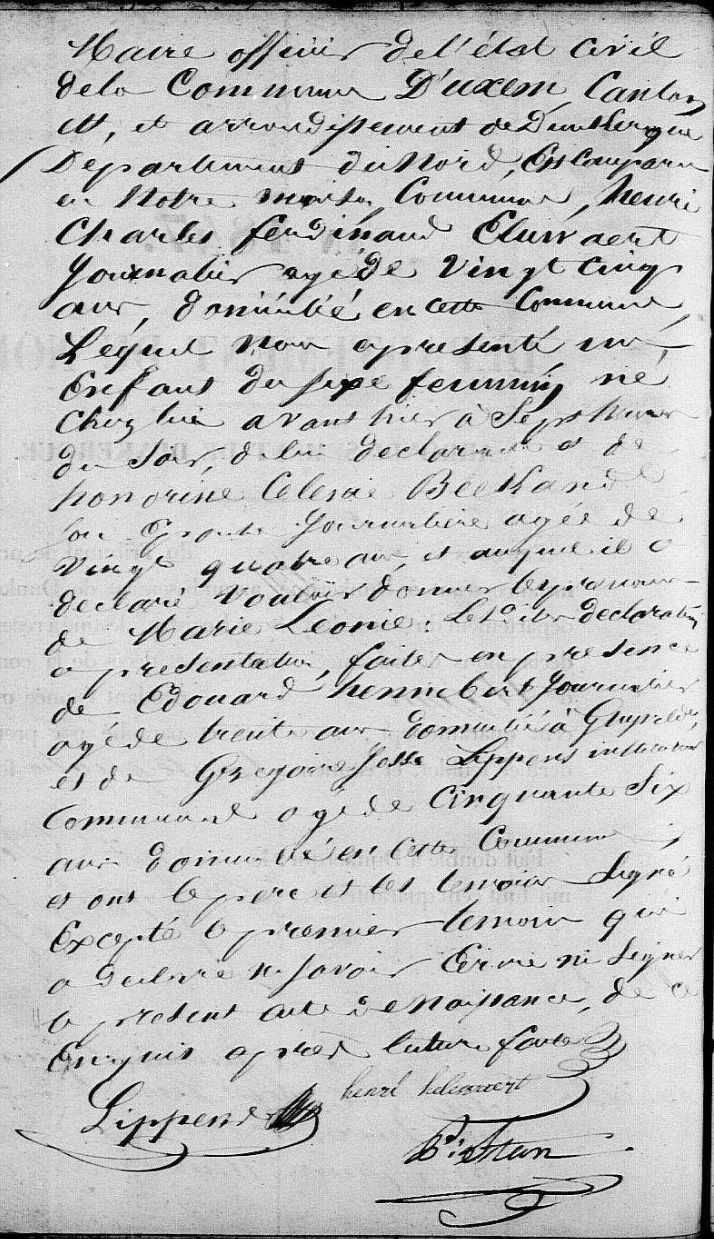 Maire officier de l'état civil
dela Commune D'uxem, Canton
est, et arrondissement de Dunkerque
Département du Nord, Est comparu
en Notre maison Commune, henri
Charles ferdinand
Journalier agé de Vingt cinq
ans, domicilié en cette Commune
Lequel nous a presenté un
Enfant du sexe feminin né
Chez lui avant hier à Sept heures
du soir, de lui declarant et de
honorine Celenie
son Epouse Journaliere agée de
Vingt quatre ans, et auquel il a
declaré Vouloir donner les prenoms
de Marie Léonie. Lesdites declaration
et presentation, faites en presence
de Edouard hennebert Journalier
agé de trente ans domicilié à
et de Gregoire Lippens instituteur
Communal agé de Cinquante Six
ans domicilié en cette Commune,
et ont le pere et les temoins signé
Excepté le premier temoin qui
a declaré ne savoir Ecrire ni signer
le present acte de Naissance, de ce
Enquis apres lecture faite
henri
Lippens